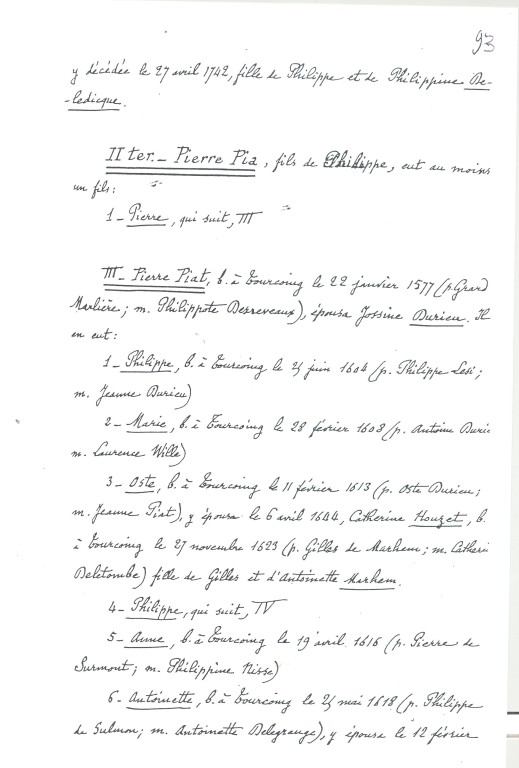 93
y décédée le 27 avril 1742, fille de Philippe et de Philippine De-
-ledicque.
II ter. - Pierre Pia, fils de Philippe, eut au moins
un fils:
1 - Pierre, qui suit, III
III - Pierre Piat, b. à Tourcoing le 22 janvier 1577 (p. Grard
Marlière; m. Philippote Desreveaux), épousa Jossine Durieu. Il
en eut:
1 - Philippe, b. à Tourcoing le 25 juin 1604 (p. Philippe Lesi;
m. Jeanne Durieu)
2 - Marie, b. à Tourcoing le 28 février 1608 (p. Antoine Durie
m. Laurence Wille)
3 - Oste, b. à Tourcoing le 11 février 1613 (p. Oste Durieu;
m. Jeanne Piat), y épousa le 6 avril 1644, Catherine Houzet, b.
à Tourcoing le 27 novembre 1623 (p. Gilles de Marhem; m. Catheri
Deletombe) fille de Gilles et d'Antoinette Marhem.
4 - Philippe, qui suit, IV
5 - Anne, b. à Tourcoing le 19 avril 1616 (p. Pierre de
Surmont; m. Philippine Nisse)
6 - Antoinette, b. à Tourcoing le 25 mai 1618 (p. Philippe
de Sulmon; m. Antoinette Delegrange), y épousa le 12 février